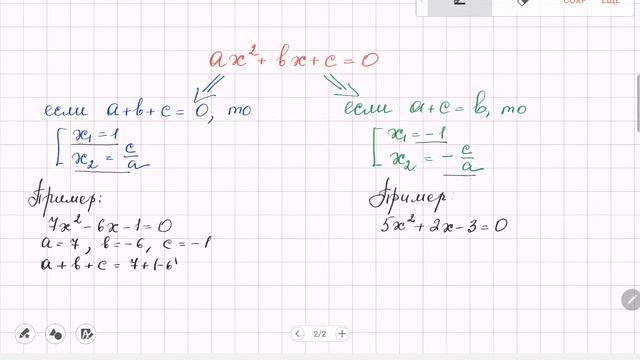 сохр ещё
ax² + bx + c = 0
если a+b+c = 0, то
x₁ = 1
x₂ = c/a
если a+c = b, то
x₁ = -1
x₂ = - c/a
Пример:
7x² - 6x - 1 = 0
a = 7, b = -6, c = -1
a + b + c = 7 + (-6
Пример:
5x² + 2x - 3 = 0
2/2